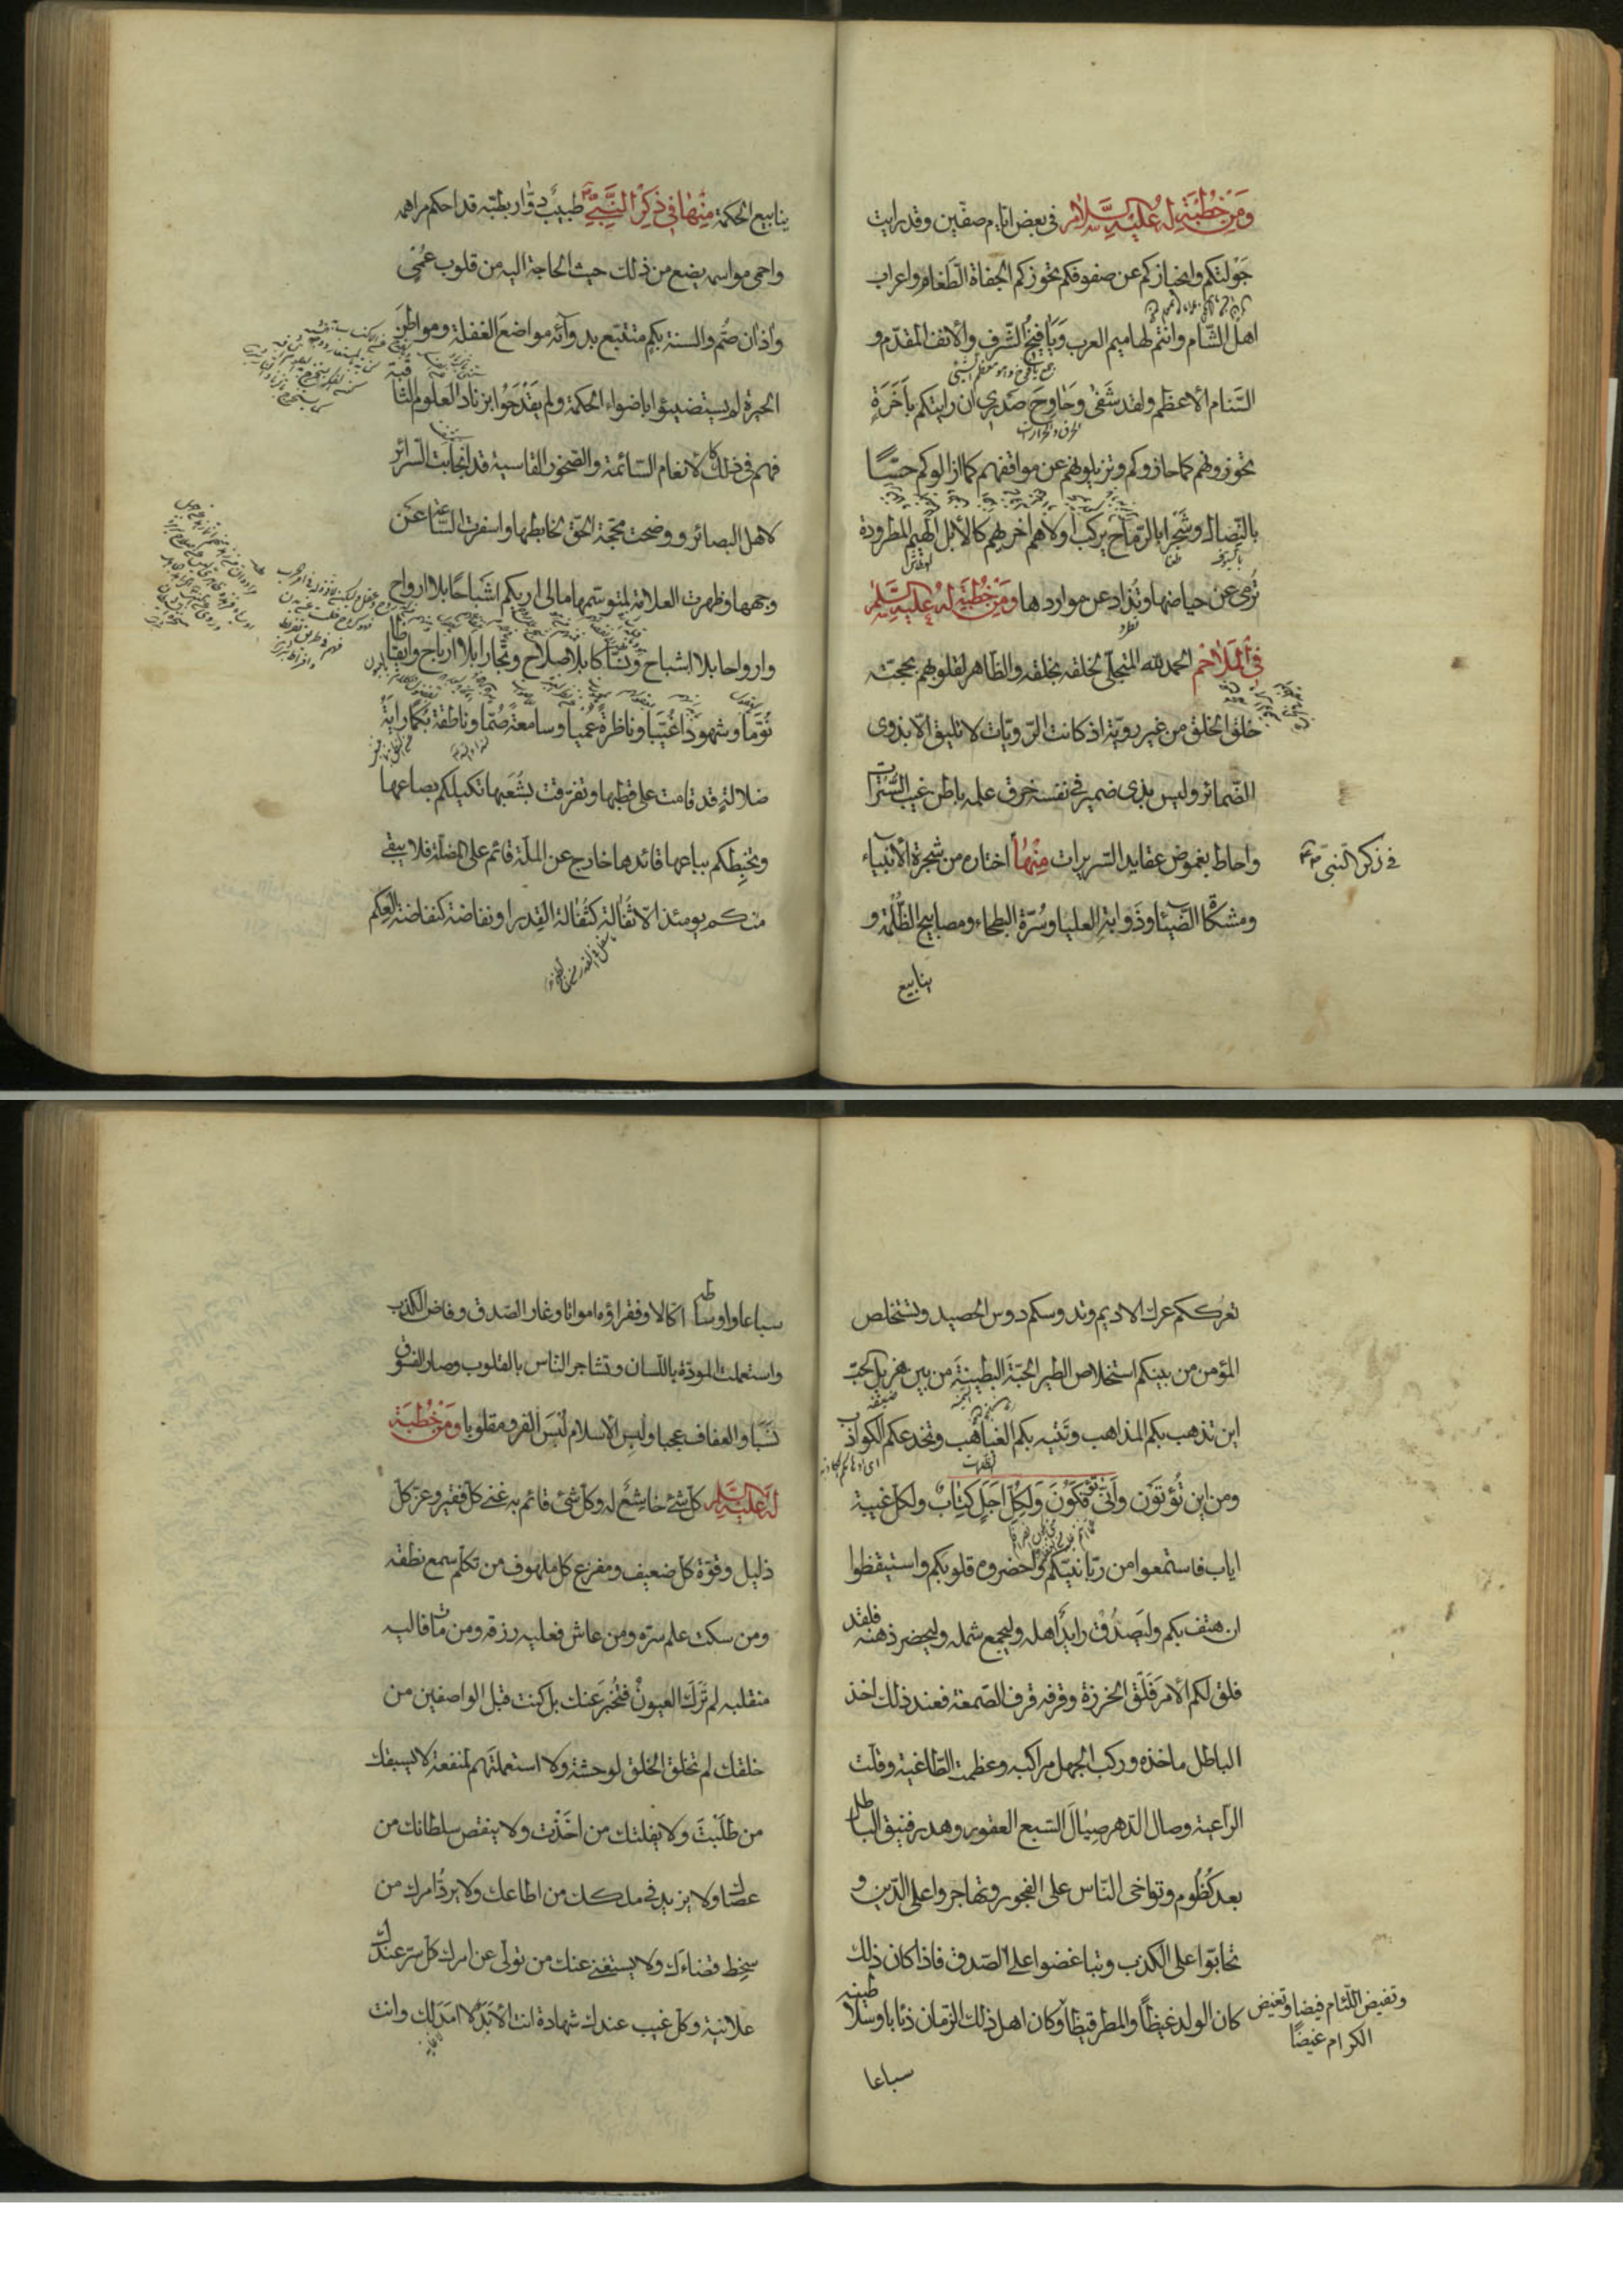 ومن خطبة له عليه السلام في بعض ايام صفين وقد رايت
جَوْلتكم وانحيازكم عن صفوفكم تحوزكم الجفاة الطَّغام واعراب
اهل الشّام وانتم لهاميم العرب وَيَافيخُ الشّرف والانف المقدّم و
السَّنام الاعظم ولقد شَفى وَحَاوِحَ صَدري ان رايتكم بِاَخَرَةٍ
تحوزونهم كما حازوكم وتزيلونهم عن مواقفهم كما ازالوكم حسًّا
بالنِّصال وشَجْرا بالرّماح يركب اولاهم اخراهم كالابل الهيم المطرودة
تُرمى عن حياضها وتُذاد عن مواردها ومن خطبة له عليه السلم
في الملاحم الحمد لله المتجلّي لخلقه بخلقه والظّاهر لقلوبهم بحجته
خلق الخلق من غير رويّة اذ كانت الرّويّات لا تليق الّا بذوى
الضّمائر وليس بذى ضمير في نفسه خرق علمه باطن غيب السُّترات
واحاط بغموض عقايد السّريرات منها اختاره من شجرة الانبياء
في ذكر النّبيّ
ومشكاة الضّيآء وذَوابةِ العليا وسُرّة البطحاء ومصابيح الظُّلمة و
ينابيع
ينابيع الحكمة منها في ذكر النّبيّ طبيبٌ دوّار بطبّه قد احكم مراهمه
واحمى مواسمه يضع من ذلك حيث الحاجة اليه من قلوب عُمْيٍ
واذان صُمّ والسنة بُكمٍ متتبّع بدوآئه مواضعَ الغفلة ومواطنَ
الحيرة لم يستضيئوا باضواء الحكمة ولم يقدَحُوا بزناد العلوم الثاقبة
فهم في ذلك كالانعام السّائمة والصّخور القاسية قد انجابت السّرائر
لاهل البصائر ووضحت محجّة الحقّ لخابطها واسفرت السّاعة عن
وجهها وظهرت العلامة لمتوسّمها مالى اريكم اشباحًا بلا ارواح
وارواحا بلا اشباح ونُسّاكا بلا صلاح وتجّارا بلا ارباح وايقاظا
نُوّما وشهودا غُيّبا وناظرةً عُميا وسامعةً صُمّا وناطقة بُكما راية
ضلالةٍ قد قامت على قطبها وتفرّقت بشُعَبها تكيلكم بصاعها
وتخبطكم بباعها قائدها خارج عن الملّة قائم على الضلّة فلا يبقى
منكم يومئذ الّا ثُفالة كثُفالة القِدر او نفاضة كنفاضة العِكم
تعرككم عرك الاديم وتدوسكم دوس الحصيد وتستخلص
المؤمن من بينكم استخلاص الطير الحبّةَ البطينةَ من بين هزيل الحبّ
اين تذهب بكم المذاهب وتَتيه بكم الغياهب وتخدعكم الكواذب
ومن اين تُؤتَون وَاَنّى تُؤفَكُونَ وَلِكُلِّ اَجَلٍ كِتابٌ ولكل غيبة
اياب فاستمعوا من ربّانيّكم واحضروه قلوبكم واستيقظوا
ان هتف بكم وليَصدُق رايدٌ اهله وليجمع شمله وليحضر ذهنه فلقد
فلق لكم الامرَ فَلْقَ الخرزة وقرفه قرف الصّمغة فعند ذلك اخذ
الباطل ماخذه وركب الجهل مراكبه وعظمت الطّاغية وقلّت
الرّاعية وصال الدّهر صِيَالَ السّبع العقور وهدر فنيق الباطل
بعد كُظُوم وتواخى النّاس على الفجور وتهاجروا على الدّين و
تحابّوا على الكذب وتباغضوا على الصّدق فاذا كان ذلك
كان الولد غيظًا والمطر قيظا وكان اهل ذلك الزّمان ذئابا وسلاطينه
وتفيض اللّئام فيضا وتغيض
الكرام غيضًا
سباعا
سباعا واوساطه اكّالا وفقراؤه امواتا وغار الصّدق وفاض الكذب
واستعملت المودّة باللّسان وتشاجر النّاس بالقلوب وصار الفسوق
نَسَبًا والعفاف عجبا ولُبِسَ الاسلام لُبْسَ الفرو مقلوبا ومن خُطبة
له عليه السلام كلّ شئ خاشِعٌ له وكلّ شئ قائم به غنى كلّ فقير وعزّ كلّ
ذليل وقوّة كلّ ضعيف ومفزع كلّ ملهوف من تكلّم سمع نطقه
ومن سكت علم سرّه ومن عاش فعليه رزقه ومن مات فاليه
منقلبه لم تَرَك العيونُ فتُخبِرَ عنك بل كنت قبل الواصفين من
خلقك لم تخلق الخلق لوحشة ولا استعملتهم لمنفعة لا يسبقك
من طَلَبْتَ ولا يفلتك من اخَذْت ولا ينقص سلطانك من
عصاك ولا يزيد في ملكك من اطاعك ولا يردّ امرك من
سخط قضاءَك ولا يستغنى عنك من تولّى عن امرك كلّ سرّ عندك
علانية وكلّ غيب عندك شهادة انت الابَدُ لا امَدَ لك وانت